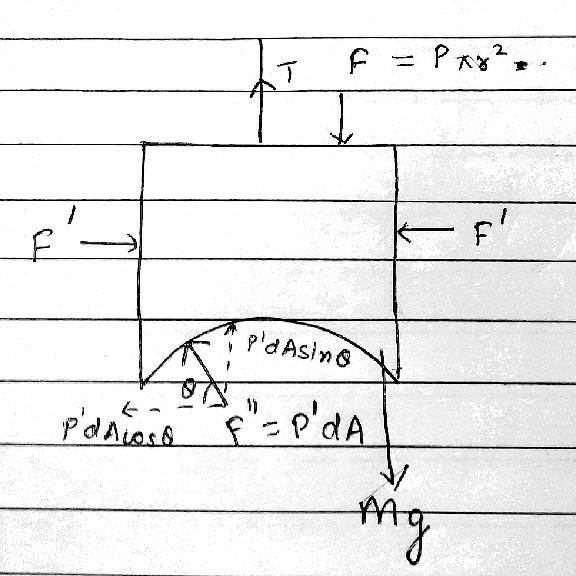 T F = Pπr²
F' F'
P'dAsinθ
θ
P'dAcosθ F" = P'dA
Mg